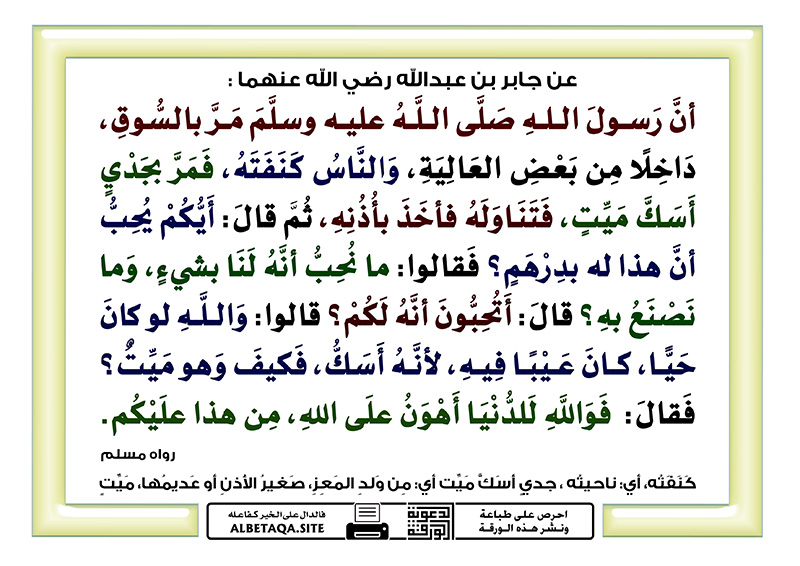 عن جابر بن عبدالله رضي الله عنهما :
أنَّ رَسولَ اللهِ صَلَّى اللَّهُ عليه وسلَّمَ مَرَّ بالسُّوقِ،
دَاخِلًا مِن بَعْضِ العَالِيَةِ، وَالنَّاسُ كَنَفَتَهُ، فَمَرَّ بجَدْيٍ
أَسَكَّ مَيِّتٍ، فَتَنَاوَلَهُ فأخَذَ بأُذُنِهِ، ثُمَّ قالَ: أَيُّكُمْ يُحِبُّ
أنَّ هذا له بدِرْهَمٍ؟ فَقالوا: ما نُحِبُّ أنَّهُ لَنَا بشيءٍ، وَما
نَصْنَعُ بهِ؟ قالَ: أَتُحِبُّونَ أنَّهُ لَكُمْ؟ قالوا: وَاللَّهِ لو كانَ
حَيًّا، كانَ عَيْبًا فِيهِ، لأنَّهُ أَسَكُّ، فَكيفَ وَهو مَيِّتٌ؟
فَقالَ: فَوَاللَّهِ لَلدُّنْيَا أَهْوَنُ علَى اللهِ، مِن هذا علَيْكُم.
رواه مسلم
كَنَفَتُه، أي: ناحيتُه ، جديٍ أسَكَّ مَيِّت أي: مِن وَلدِ المَعِزِ، صَغيرُ الأذنِ أو عَديمُها، مَيِّتٍ
احرص على طباعة
ونشر هذه الورقة
الدعوية
الورقة
فالدال على الخير كفاعله
ALBETAQA.SITE